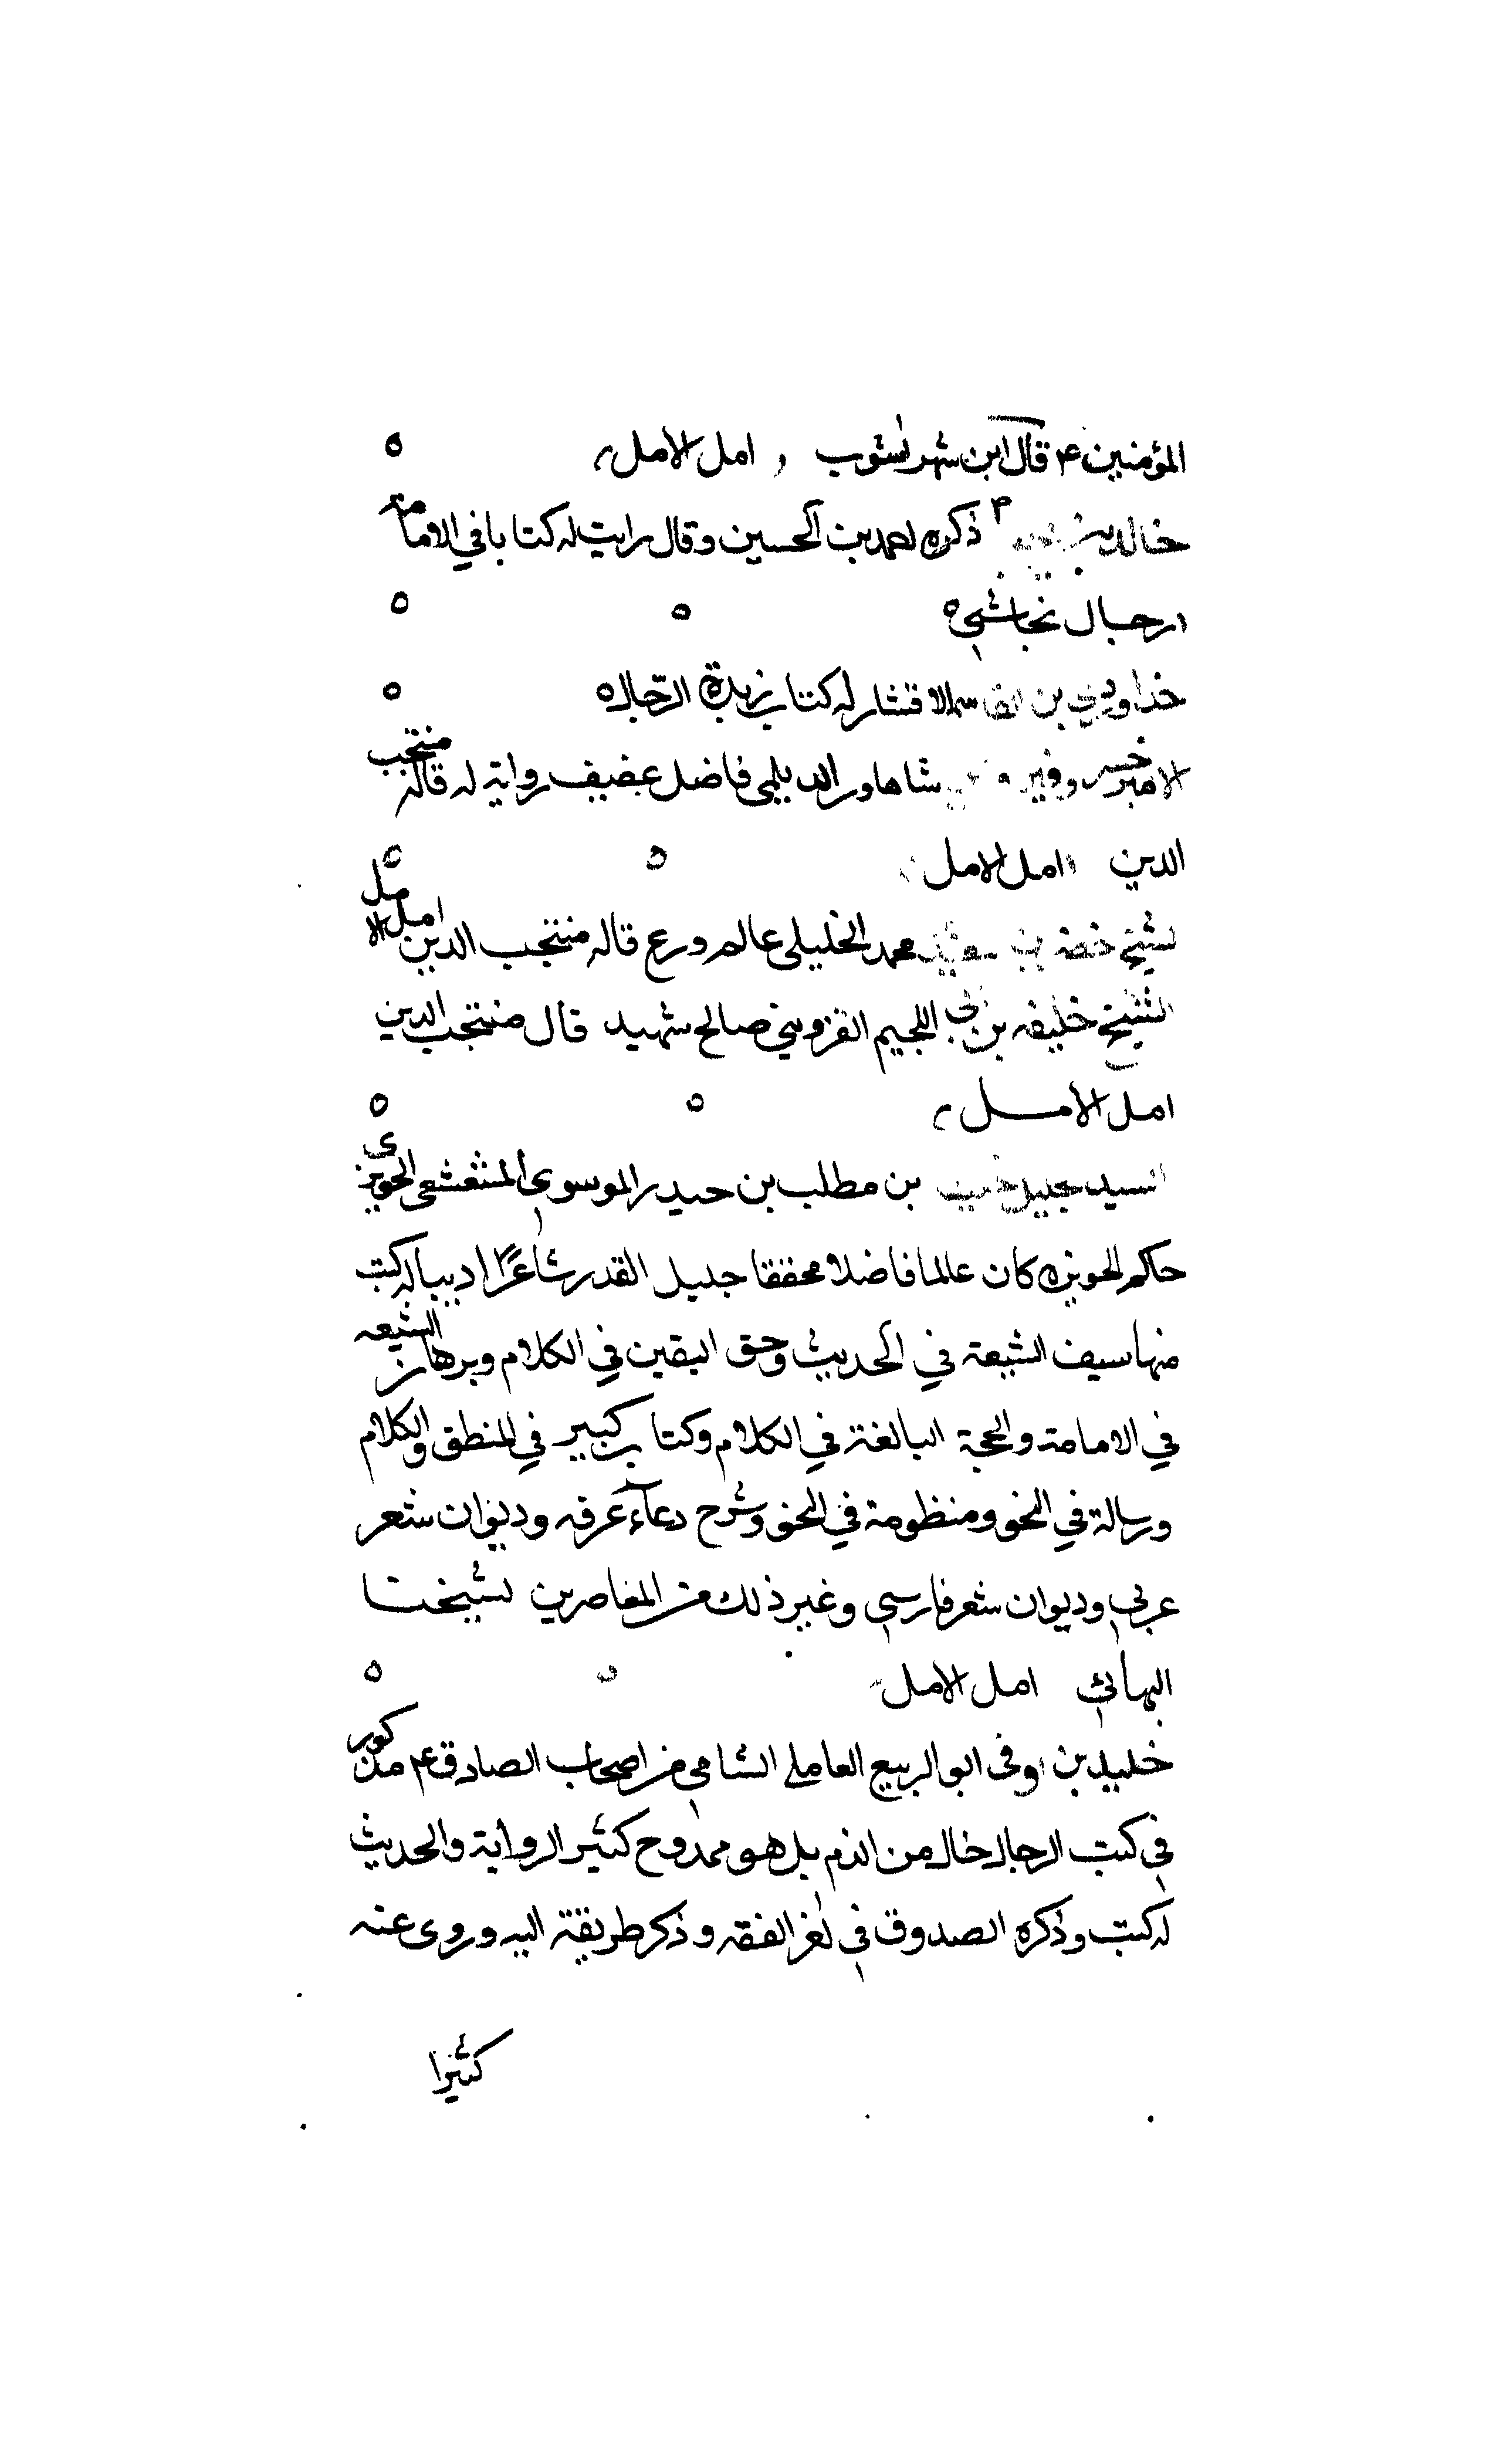 المؤمنين ع قال ابن شهراشوب امل الامل
خالد بن ذكره احمد بن الحسين وقال رايت له كتابا في الامامة
رجال نجاشي
خداوردي بن القاسم الافشار له كتاب زبدة الرجال
الامير خسرو فيروز شاهاور الديلمي فاضل عفيف رواية له قاله منتجب
الدين امل الامل
الشيخ محمد الخليلي عالم ورع قاله منتجب الدين امل الامل
الشيخ خليفه بن ابي اللجيم القزويني صالح شهيد قال منتجب الدين
امل الامل
السيد خلف بن مطلب بن حيدر الموسوي المشعشعي الحويزي
حاكم الحويزه كان عالما فاضلا محققا جليل القدر شاعرًا اديبا له كتب
منها سيف الشيعة في الحديث وحق اليقين في الكلام وبرهان الشيعه
في الامامة والحجة البالغة في الكلام وكتاب كبير في المنطق والكلام
ورسالة في النحو ومنظومة في النحو وشرح دعاء عرفه وديوان شعر
عربي وديوان شعر فارسي وغير ذلك من المعاصرين لشيخنا
البهائي امل الامل
خليد بن اوفى ابو الربيع العاملي الشامي من اصحاب الصادق ع مذكور
في كتب الرجال خال من الذم بل هو ممدوح كثير الرواية والحديث
له كتب وذكره الصدوق في اخر الفقه وذكر طريقة اليه وروى عنه
كثيرا